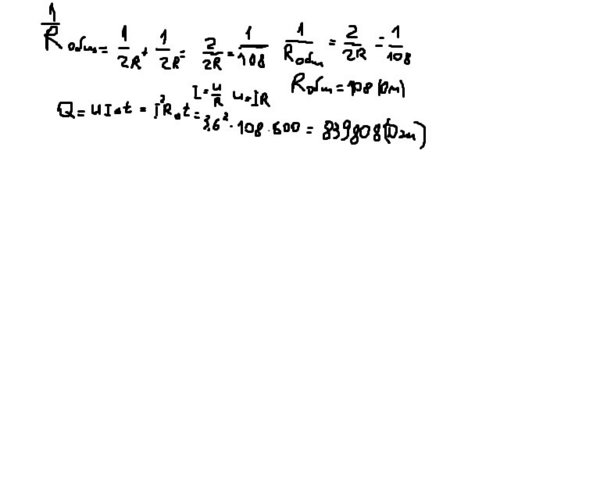 1/R общ = 1/2R + 1/2R = 2/2R = 1/108 1/Rобщ = 2/2R = 1/108
Rобщ = 108 (Ом)
I = U/R U = IR
Q = UI△t = I²R△t = 3,6² · 108 · 600 = 839808 (Дж)